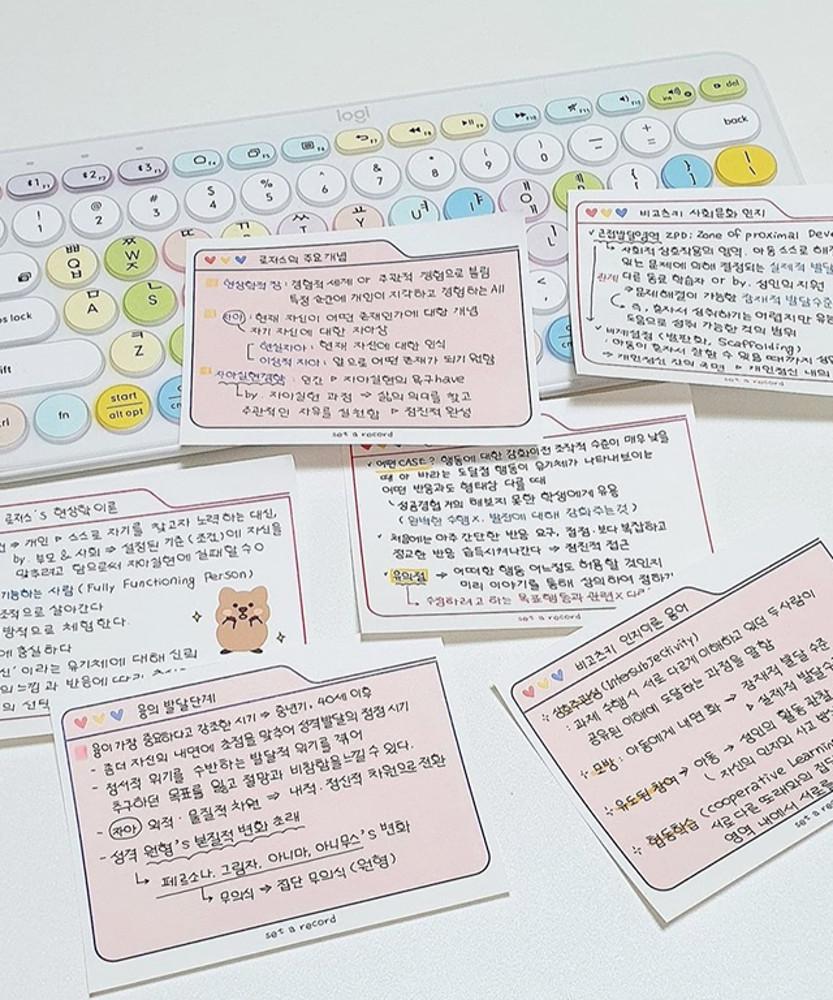 logi
F1
F2
F3
F4
F5
F6
F7
F8
F9
F10
F11
del
! 1
@ 2
# 3
$ 4
% 5
^ 6
& 7
* 8
( 9
) 0
back
ㅃ ㅂ Q
ㅉ ㅈ W
ㄸ
ㄲ
ㅆ
ㅛ Y
ㅕ U
ㅑ I
ㅒ ㅐ O
ㅖ
ㅁ A
ㄴ S
ㅣ L
ps lock
ift
ㅋ Z
fn
start
alt opt
로저스의 주요 개념
현상학적 장 : 경험적 세계 or 주관적 경험으로 불림
특정 순간에 개인이 지각하고 경험하는 All
자아 : 현재 자신이 어떤 존재인가에 대한 개념
자기 자신에 대한 자아상
현실자아 : 현재 자신에 대한 인식
이상적 자아 : 앞으로 어떤 존재가 되기 원함
자아실현경향 : 인간 ▷ 자아실현의 욕구have
by. 자아실현 과정 ⇒ 삶의 의미를 찾고
주관적인 자유를 실천함 ▷ 점진적 완성
set a record
비고츠키 사회문화 인지
근접발달영역 ZPD: Zone of proximal Deve
사회적 상호작용의 영역. 아동 스스로 해
있는 문제에 의해 결정되는 실제적 발달
관계 다른 동료 학습자 or by. 성인의 지원
문제해결이 가능한 잠재적 발달수준
즉, 혼자서 성취하기는 어렵지만 유능
도움으로 성취 가능한 것의 범위
비계설정 (발판화, Scaffolding)
: 아동이 혼자서 잘할 수 있을 때까지 성
set a record
어떤 CASE? 행동에 대한 강화이전 조작적 수준이 매우 낮을
때 or 바라는 도달점 행동이 유기체가 나타내보이는
어떤 반응과도 형태상 다를 때
성공경험 거의 해보지 못한 학생에게 유용
(완벽한 수행 X. 발전에 대해 강화주는 것)
처음에는 아주 간단한 반응 요구, 점점 보다 복잡하고
정교한 반응 습득시켜나간다 ⇒ 점진적 접근
유의점 → 어떠한 행동 어느정도 허용할 것인지
미리 이야기를 통해 상의하여 정하기
수정하려고 하는 목표행동과 관련X
set a record
로저스's 현상학 이론
⇒ 개인 ▷ 스스로 자기를 찾고자 노력하는 대신,
by. 부모 & 사회 ⇒ 설정된 기준 (조건)에 자신을
맞추려고 함으로써 자아실현에 실패할 수 O
기능하는 사람 (Fully Functioning Person)
조적으로 살아간다
방적으로 체험한다.
에 충실하다
신'이라는 유기체에 대해 신뢰
의 느낌과 반응에 따라
의 선택
융의 발달단계
융이 가장 중요하다고 강조한 시기 ⇒ 중년기, 40세 이후
- 좀더 자신의 내면에 초점을 맞추어 성격발달의 절정 시기
- 정서적 위기를 수반하는 발달적 위기를 겪어
추구하던 목표를 잃고 절망과 비참함을 느낄 수 있다.
- 자아 외적·물질적 차원 ⇒ 내적·정신적 차원으로 전환
- 성격 원형's 본질적 변화 초래
페르소나, 그림자, 아니마, 아니무스's 변화
무의식 ⇒ 집단 무의식 (원형)
set a record
비고츠키 인지이론 용어
상호주관성 (Intersubjectivity)
: 과제 수행시 서로 다르게 이해하고 있던 두사람이
공유된 이해에 도달하는 과정을 말함
내면화 → 잠재적 발달 수준
▷ 실제적 발달수
모방 : 아동에게
유도된 참여 → 아동 → 성인의 활동 관찰
(자신의 인지와 사고
협동학습 (cooperative Learnin
서로 다른 또래와의 집단
영역 내에서 서로를
set a re